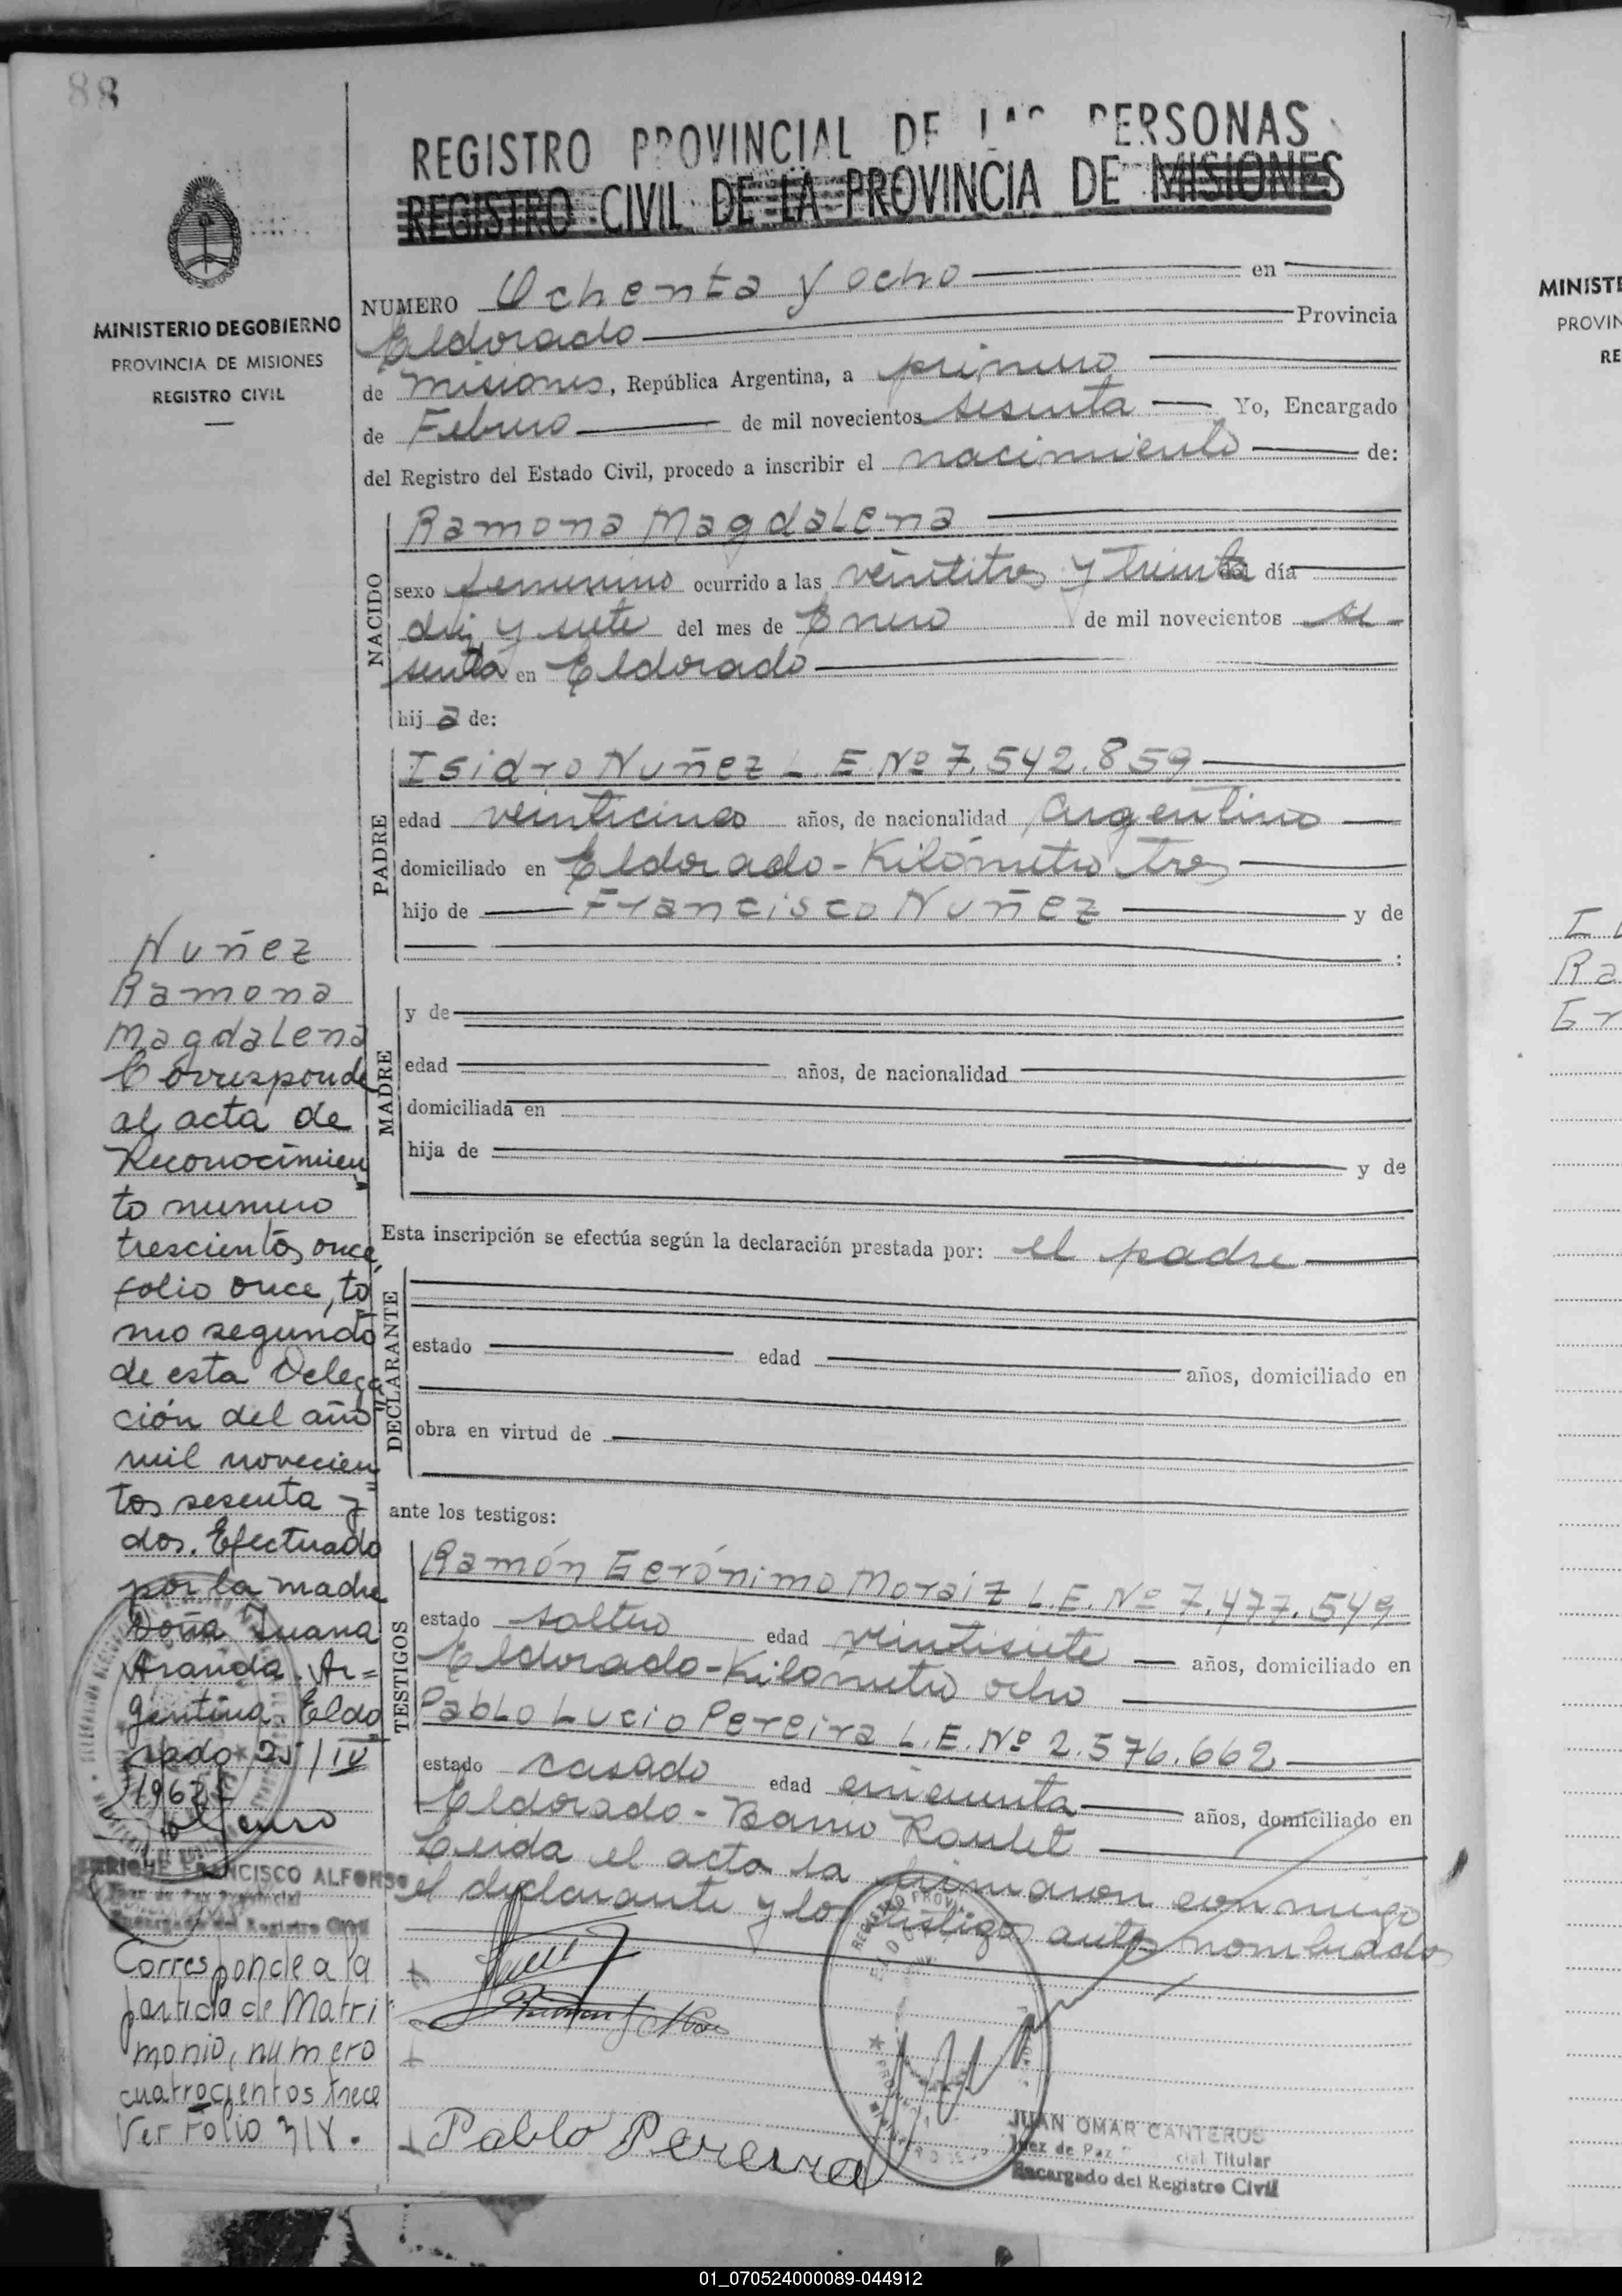 88
REGISTRO PROVINCIAL DE LAS PERSONAS
REGISTRO CIVIL DE LA PROVINCIA DE MISIONES
MINISTERIO DE GOBIERNO
PROVINCIA DE MISIONES
REGISTRO CIVIL
NUMERO Ochenta y ocho en
Eldorado Provincia
de Misiones, República Argentina, a primero
de Febrero de mil novecientos sesenta Yo, Encargado
del Registro del Estado Civil, procedo a inscribir el nacimiento de:
NACIDO
Ramona Magdalena
sexo femenino ocurrido a las veintitres y treinta del día
diez y siete del mes de Enero de mil novecientos se-
senta en Eldorado
hija de:
PADRE
Isidro Nuñez L.E. Nº 7.542.859
edad veinticinco años, de nacionalidad Argentino
domiciliado en Eldorado-Kilómetro tres
hijo de Francisco Nuñez y de
:
MADRE
y de
edad años, de nacionalidad
domiciliada en
hija de y de
Esta inscripción se efectúa según la declaración prestada por: el padre
DECLARANTE
estado edad años, domiciliado en
obra en virtud de
ante los testigos:
TESTIGOS
Ramón Gerónimo Moraiz L.E. Nº 7.477.549
estado soltero edad veintisiete años, domiciliado en
Eldorado-Kilómetro ocho
Pablo Lucio Pereira L.E. Nº 2.576.662
estado casado edad cincuenta años, domiciliado en
Eldorado-Barrio Roulet
Leida el acta la firmaron conmigo
el declarante y los testigos antes nombrados
Pablo Pereira
JUAN OMAR CANTEROS
Juez de Paz Titular
Encargado del Registro Civil
Nuñez
Ramona
Magdalena
Corresponde
al acta de
Reconocimien
to numero
trescientos once,
folio once, to
mo segundo
de esta Delega
ción del año
mil novecien
tos sesenta y
dos. Efectuado
por la madre
Doña Juana
Aranda. Ar=
gentina. Eldo
rado, 25/IV
ENRIQUE FRANCISCO ALFONSO
Juez de Paz Provincial
Encargado del Registro Civil
Corresponde a la
partida de Matri
monio, numero
cuatrocientos trece
Ver Folio
MINISTE
PROVIN
RE
Ra
01_070524000089-044912